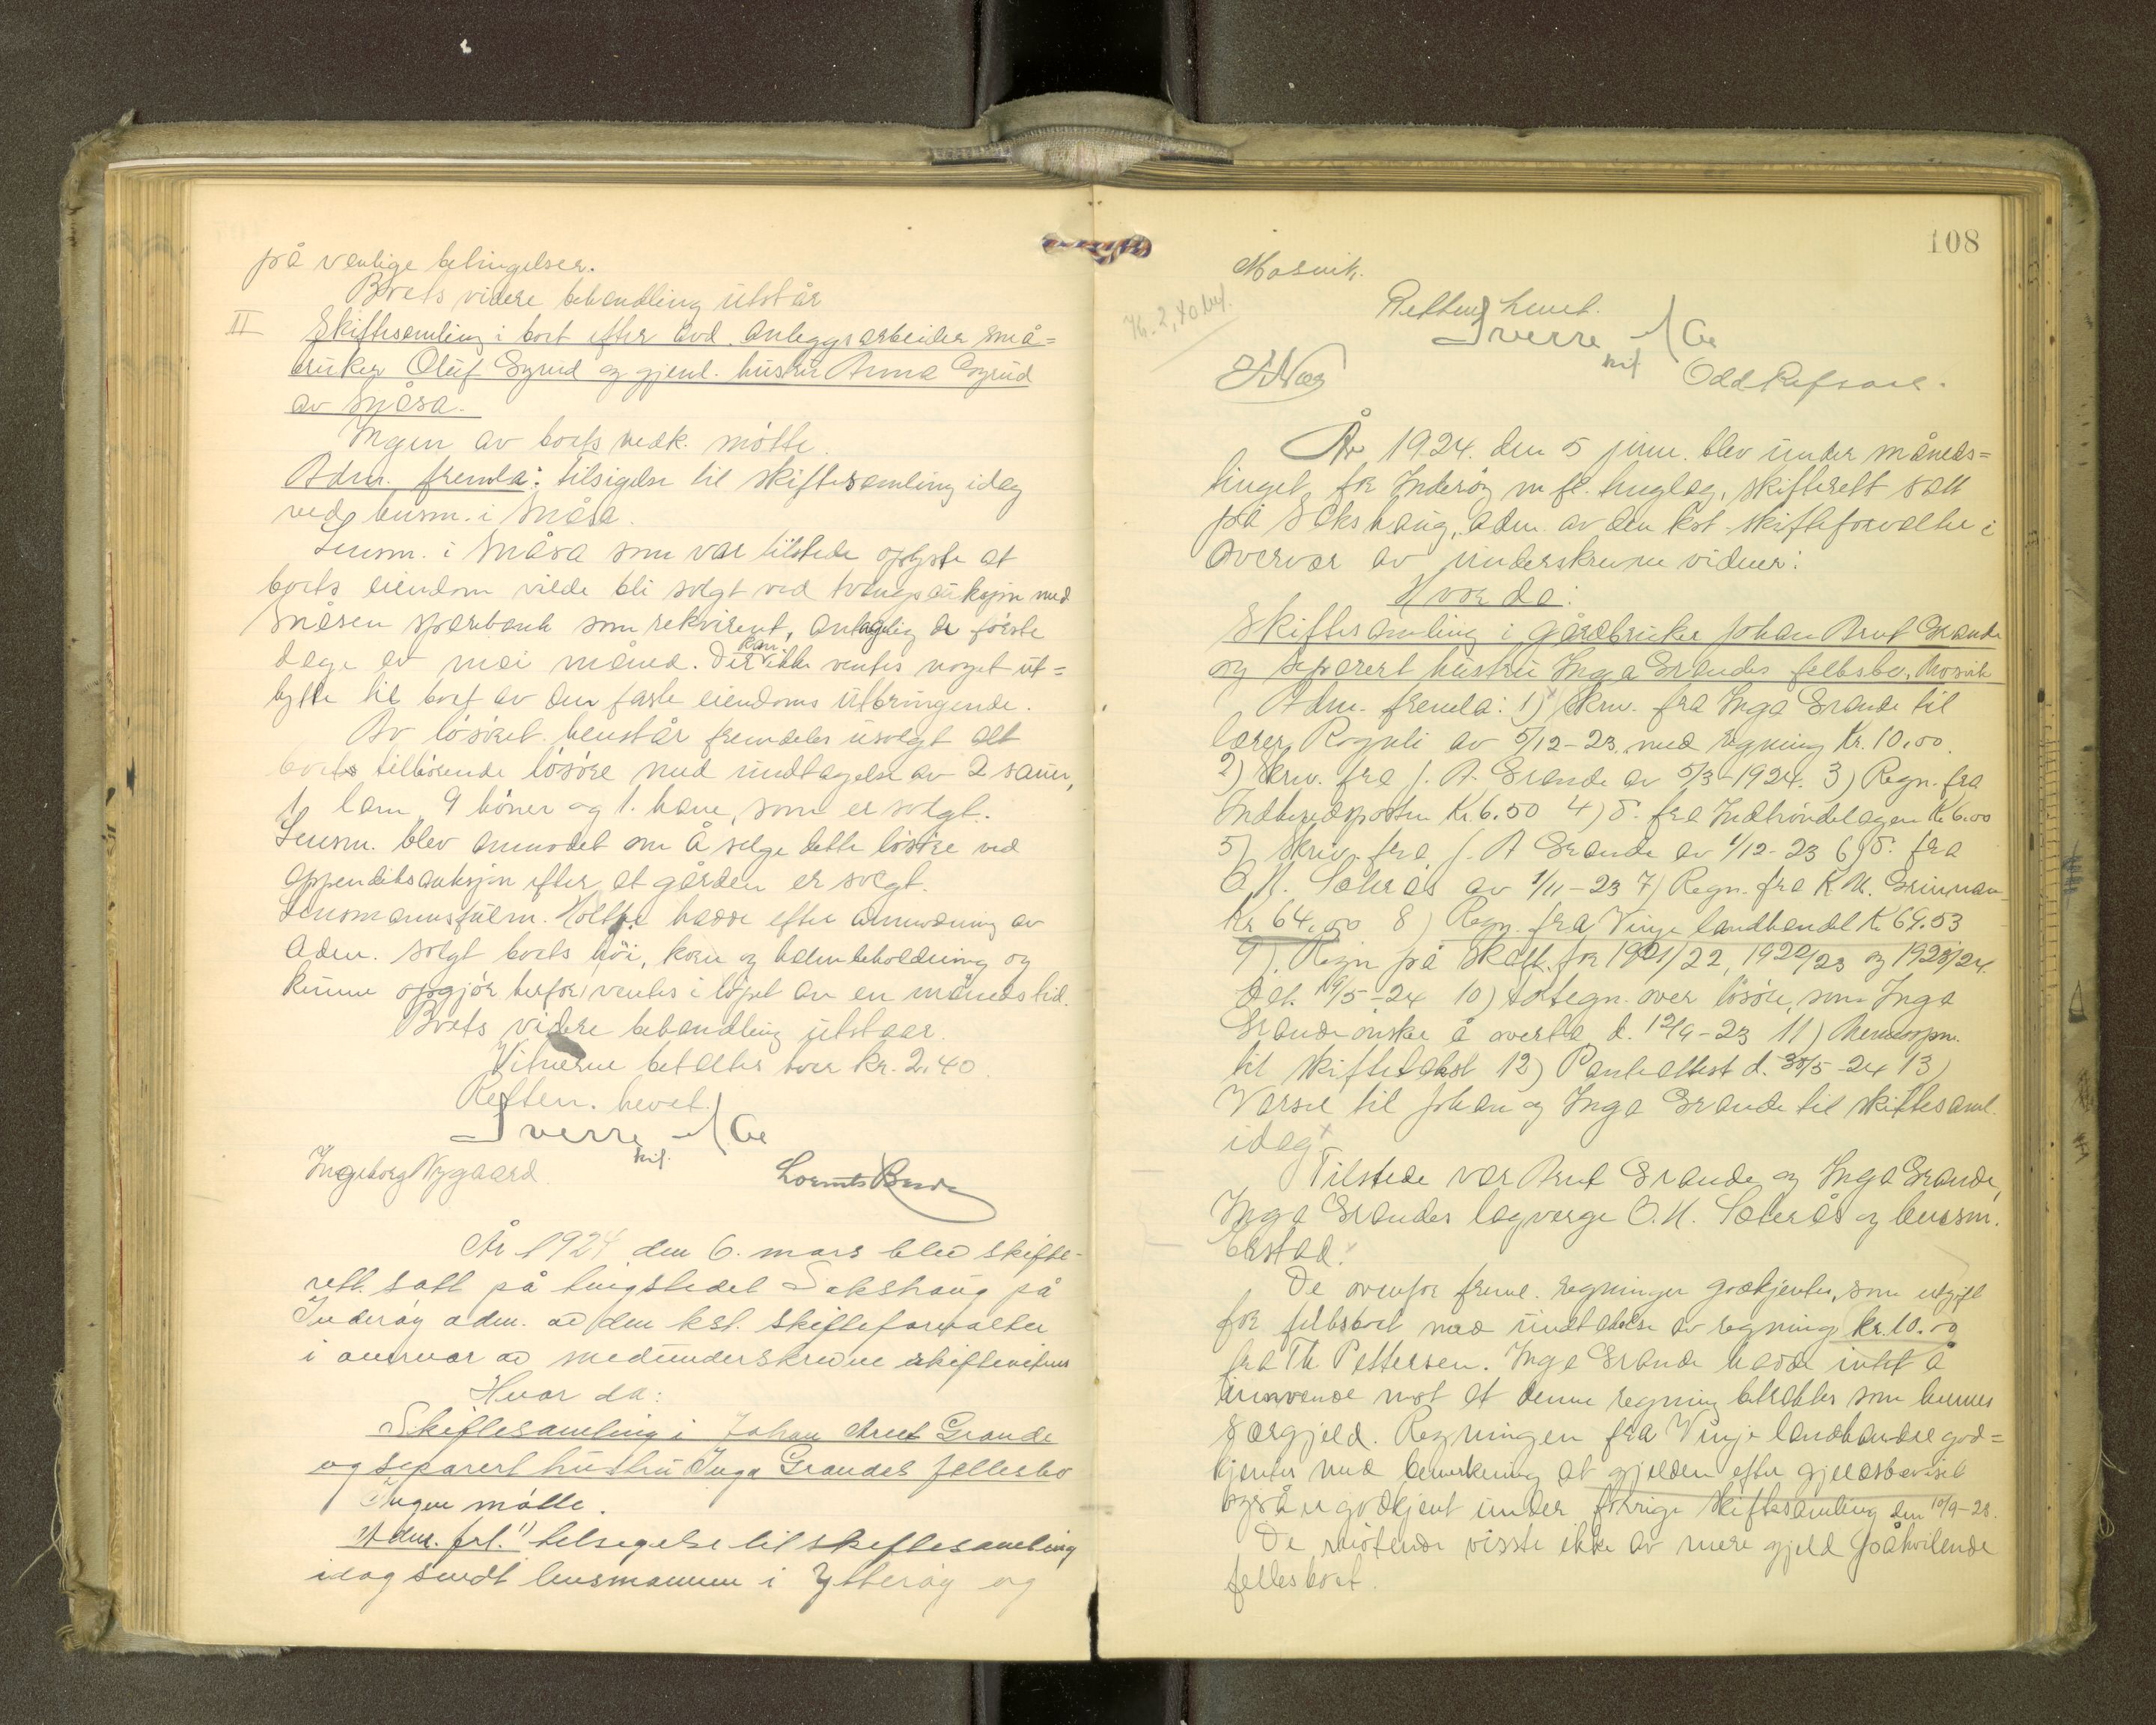 på vanlige betingelser.
Boets videre behandling utstår
II Skiftesamling i boet efter avd. anleggsarbeider små=
bruker Oluf Gyrud og gjenl. hustru Anna Gyrud
av Snåsa.
Ingen av boets vedk. møtte.
Adm. fremla: tilsigelse til skiftesamling idag
ved lensm. i Snåsa.
Lensm. i Snåsa som var tilstede oplyste at
boets eiendom vilde bli solgt ved tvangsauksjon med
Snåsen sparebank som rekvirent, antagelig de første
dage av mai måned. Der kan ikke ventes noget ut=
bytte til boet av den faste eiendoms utbringende.
Av løsøret henstår fremdeles usolgt alt
boets tilhørende løsøre med undtagelse av 2 sauer,
1 lam 9 høner og 1. hane, som er solgt.
Lensm. blev anmodet om å selge dette løsøre ved
appendiksauksjon efter at gården er solgt.
Lensmannsfullm. Holtpe hadde efter anmodning av
adm. solgt boets høi, korn og halmbeholdning og
kunne opgjør herfor ventes i løpet av en måneds tid.
Boets videre behandling utstaar.
Vitnerne betaltes hver kr. 2.40
Retten hevet.
Sverre Aa
kst.
Ingeborg Nygaard.
År 1924 den 6. mars blev skifte-
rett satt på tingstedet Sakshaug på
Inderøy adm. av den kst. skifteforvalter
i overvær av medunderskrevne skiftevitner
Hvor da:
Skiftesamling i Johan Arnt Grande
og separert hustru Inga Grandes fellesbo
Ingen møtte.
Adm. frl. 1) tilsigelse til skiftesamling
idag sendt lensmannen i Ytterøy og
108
Mosvik.
Kr. 2,40 bet.
Retten hevet.
Sverre Aa
kst
Odd Refsaas.
År 1924. den 5 juni blev under måneds=
tinget for Inderøy m fl. tinglag, skifterett satt
på Sakshaug, adm. av den kst. skifteforvalter i
overvær av underskrevne vidner:
Hvor da:
Skiftesamling i gårdbruker Johan Arnt Grande
og separert hustru Inga Grandes fellesbo, Mosvik
Adm. fremla: 1) Skriv. fra Inga Grande til
lærer Rognli av 5/12-23 med regning Kr. 10.00.
2) Skriv. fra J. A. Grande av 5/3-1924. 3) Regn. fra
Indherredsposten Kr 6.50 4) d. fra Indtrøndelagen Kr 6.00
5) Skriv. fra J. A Grande av 1/12-23 6) d. fra
O. N. Saterås av 1/11-23 7) Regn. fra K. M. Grinnan
Kr 64.00 8) Regn. fra Vinje landhandel Kr 69.53
9) Regn på Skatt. for 1921/22, 1922/23 og 1923/24.
dat. 19/5-24 10) Fortegn. over løsøre, som Inga
Grande ønsker å overta d. 12/9-23 11)
til skiftetakst 12) Panteattest d. 30/5-24 13)
Varsel til Johan og Inga Grande til skiftesaml.
idag
Tilstede var Arnt Grande og Inga Grande,
Inga Grandes lagverge O. N. Saterås og lensm.
Ekstad.
De ovenfor freml. regninger godkjentes, som utgift
for fellesboet med undtakelse av regning kr. 10.00
fra Th. Pettersen. Inga Grande hadde intet å
innvende mot at denne regning betraktes som hennes
særgjeld. Regningen fra Vinje landhandel god=
kjentes med bemerkning at gjelden efter gjeldsbeviset
også er godkjent under forrige skiftesamling den 10/9-23.
De møtende visste ikke av mere gjeld påhvilende
fellesboet.